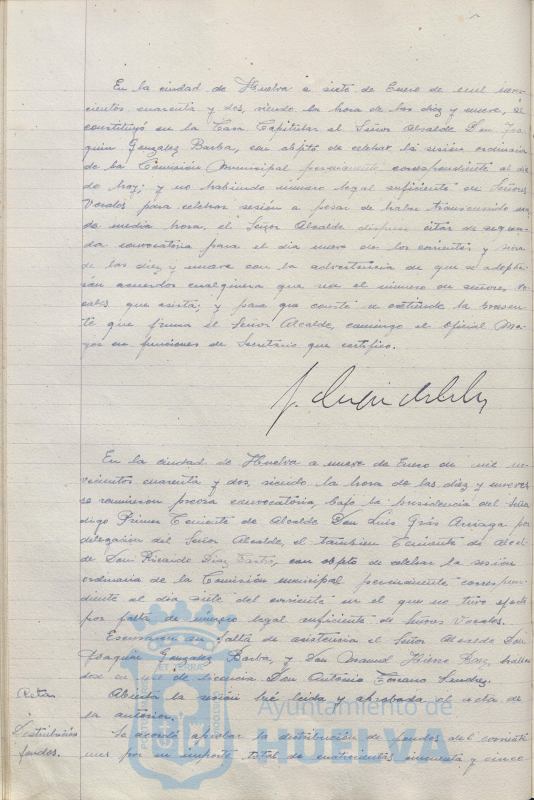 En la ciudad de Huelva a siete de Enero de mil nove-
cientos cuarenta y dos, siendo la hora de las diez y nueve, se
constituyó en la Casa Capitular el Señor Alcalde Don Joa-
quin Gonzalez Barba, con objeto de celebrar la sesión ordinaria
de la Comisión Municipal permanente correspondiente al dia
de hoy; y no habiendo número legal suficiente de Señores
Vocales para celebrar sesión a pesar de haber transcurrido mas
de media hora, el Señor Alcalde dispuso citar de segun-
da convocatoria para el dia nueve de los corrientes y hora
de las diez y nueve con la advertencia de que se adopta-
rán acuerdos cualquiera que sea el número de señores Vo-
cales que asista; y para que conste se extiende la presen-
te que firma el Señor Alcalde, conmigo el Oficial Ma-
yor en funciones de Secretario que certifico.
En la ciudad de Huelva a nueve de Enero de mil no-
vecientos cuarenta y dos, siendo la hora de las diez y nueve
se reunieron previa convocatoria, bajo la presidencia del Señor
digo Primer Teniente de Alcalde Don Luis Gras Arriaga por
delegación del Señor Alcalde, el tambien Teniente de Alcal-
de Don Ricardo Diaz con objeto de celebrar la sesión
ordinaria de la Comisión municipal permanente correspon-
diente al dia siete del corriente en el que no tuvo efecto
por falta de número legal suficiente de Señores Vocales.
Excusaron su falta de asistencia el Señor Alcalde Don
Joaquin Gonzalez Barba, y Don Manuel
en uso de licencia Don Antonio
Acta Abierta la sesión fué leida y aprobada el acta de
la anterior.
Distribución Se acordó aprobar la distribución de fondos del corriente
fondos. mes por un importe total de cuatrocientas cincuenta y cinco
Ayuntamiento de
HUELVA